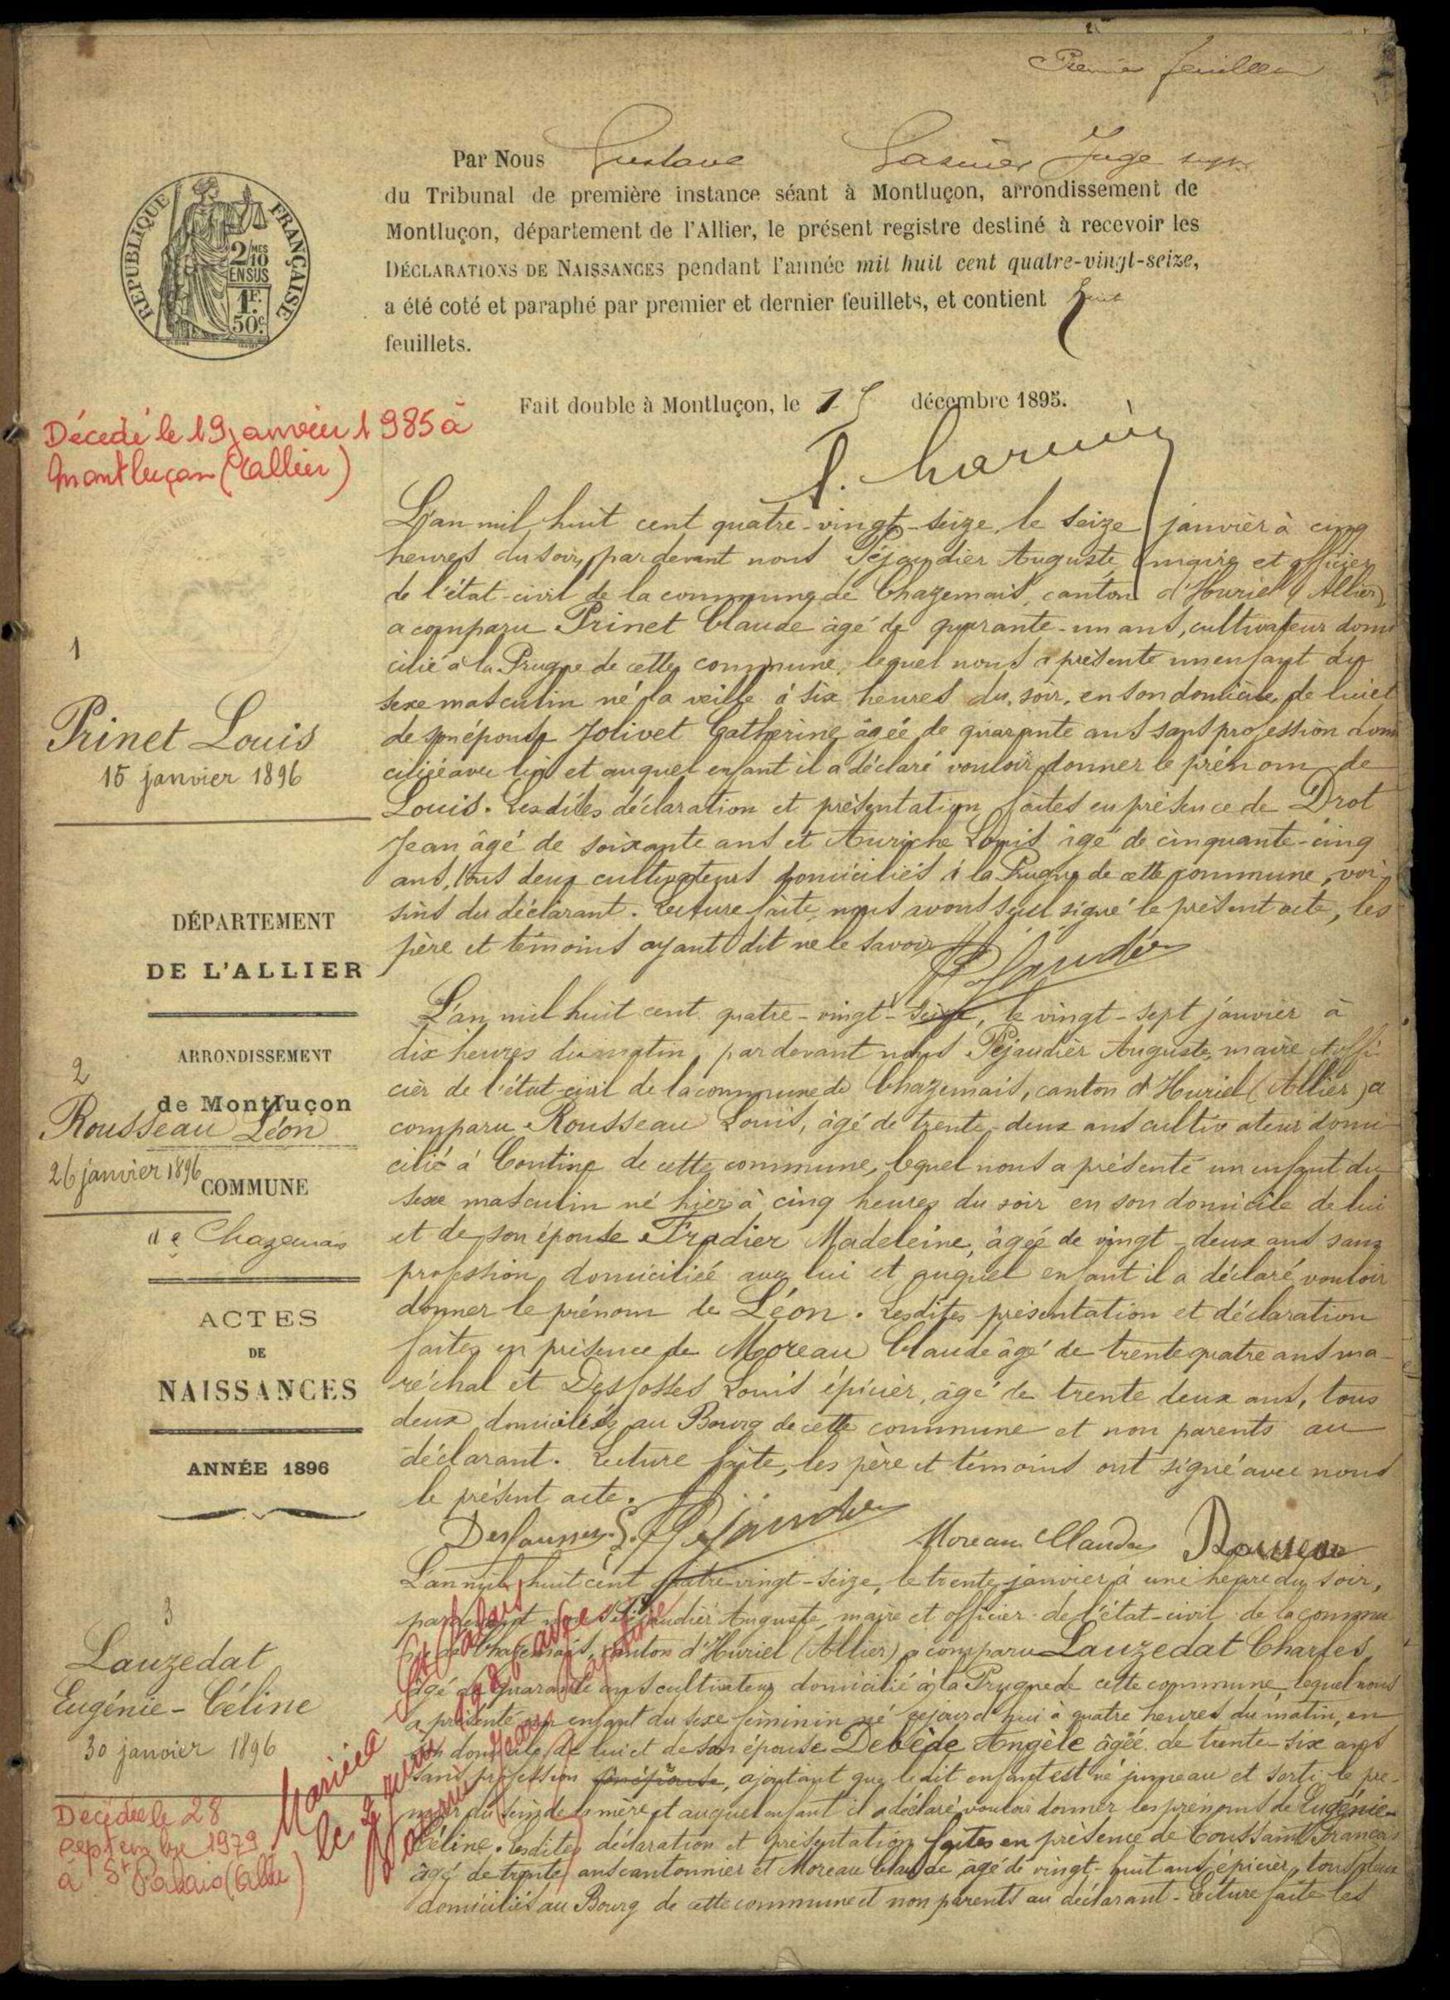 Premier feuillet
Par Nous Gustave Juge supt
du Tribunal de première instance séant à Montluçon, arrondissement de
Montluçon, département de l'Allier, le présent registre destiné à recevoir les
DÉCLARATIONS DE NAISSANCES pendant l'année mil huit cent quatre-vingt-seize,
a été coté et paraphé par premier et dernier feuillets, et contient huit
feuillets.
Fait double à Montluçon, le 15 décembre 1895.
RÉPUBLIQUE FRANÇAISE
2/10 MES
EN SUS
1F.
50c.
Décédé le 19 janvier 1985 à
Montluçon (Allier)
1
Prinet Louis
15 janvier 1896
L'an mil huit cent quatre-vingt-seize, le seize janvier à cinq
heures du soir, par devant nous Péjaudier Auguste, maire et officier
de l'état-civil de la commune de Chazemais, canton d'Huriel (Allier)
a comparu Prinet Claude âgé de quarante-un ans, cultivateur domi
cilié à la Prugne de cette commune, lequel nous a présenté un enfant du
sexe masculin né la veille à six heures du soir, en son domicile de lui et
de son épouse Jolivet Catherine âgée de quarante ans sans profession domi
ciliée avec lui et auquel enfant il a déclaré vouloir donner le prénom de
Louis. Lesdites déclaration et présentation faites en présence de Drot
Jean âgé de soixante ans et Auriche Louis âgé de cinquante-cinq
ans, tous deux cultivateurs domiciliés à la Prugne de cette commune, voi-
sins du déclarant. Lecture faite, nous avons seul signé le présent acte, les
père et témoins ayant dit ne le savoir. Péjaudier
DÉPARTEMENT
DE L'ALLIER
ARRONDISSEMENT
de Montluçon
COMMUNE
de Chazemais
ACTES
DE
NAISSANCES
ANNÉE 1896
2
Rousseau Léon
26 janvier 1896
L'an mil huit cent quatre-vingt-seize, le vingt-sept janvier à
dix heures du matin, par devant nous Péjaudier Auguste, maire et offi-
cier de l'état-civil de la commune de Chazemais, canton d'Huriel (Allier) a
comparu Rousseau Louis, âgé de trente-deux ans cultivateur domi-
cilié à Contine de cette commune, lequel nous a présenté un enfant du
sexe masculin né hier à cinq heures du soir en son domicile de lui
et de son épouse Fradier Madeleine, âgée de vingt-deux ans sans
profession domiciliée avec lui et auquel enfant il a déclaré vouloir
donner le prénom de Léon. Lesdites présentation et déclaration
faites en présence de Moreau Claude âgé de trente quatre ans ma-
réchal et Desfosses Louis épicier, âgé de trente deux ans, tous
deux domiciliés au Bourg de cette commune et non parents au
déclarant. Lecture faite, les père et témoins ont signé avec nous
le présent acte.
Péjaudier Moreau Claude Rousseau
3
Lauzedat
Eugénie-Céline
30 janvier 1896
Décédée le 28
septembre 1979
à St Palais (Allier)
L'an mil huit cent quatre-vingt-seize, le trente janvier à une heure du soir,
par devant nous Péjaudier Auguste, maire et officier de l'état-civil de la commu
ne de Chazemais, canton d'Huriel (Allier) a comparu Lauzedat Charles
âgé de quarante ans cultivateur domicilié à la Prugne de cette commune lequel nous
a présenté un enfant du sexe féminin né cejourd'hui à quatre heures du matin, en
son domicile de lui et de son épouse Debède Angèle âgée de trente-six ans
sans profession, ajoutant que ledit enfant est né jumeau et sorti le pre-
mier du sein de sa mère et auquel enfant il a déclaré vouloir donner les prénoms de Eugénie-
Céline. Lesdites déclaration et présentation faites en présence de Toussaint François
âgé de trente ans cantonnier et Moreau Claude âgé de vingt-huit ans, épicier, tous deux
domiciliés au Bourg de cette commune et non parents au déclarant. Lecture faite les
Mariée à St Palais
le juin avec